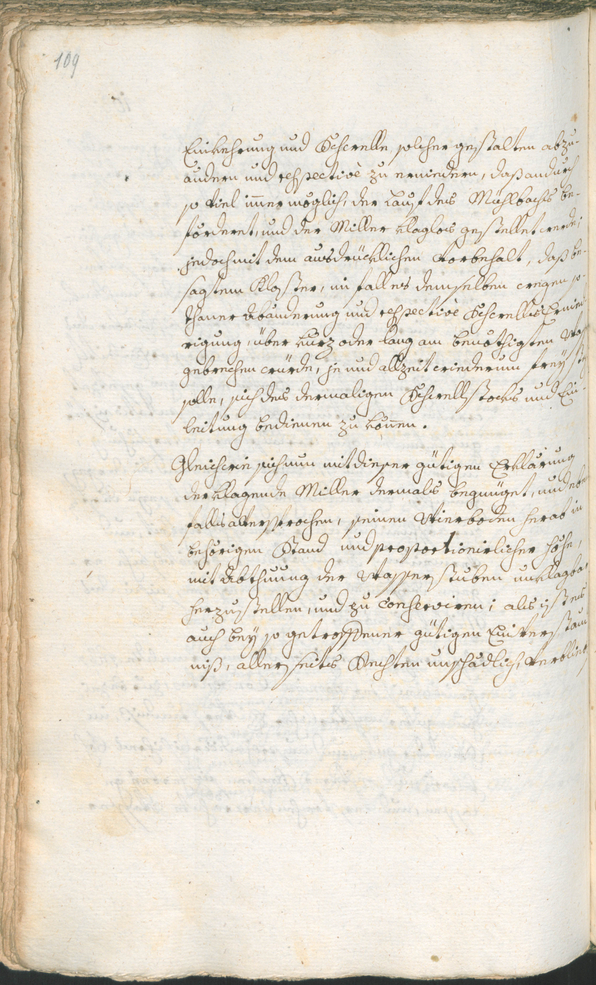 109
Einkehrung und Schwelle solcher gestalten abzu-
ändern und respective zu erniedern, daß andurch
so viel immer möglich, der Lauf des Mühlbachs be-
förderet, und der Miller klaglos gestellet werde;
jedoch mit dem ausdrücklichen Vorbehalt, daß be-
sagtem Kloster, im falle es demselben wegen so-
thaner Abänderung und respective Schwellis Ernied-
rigung, über kurz oder lang am benöthigten
gebrechen würde, je und allzeit wiederum frey
solle, sich des dermaligen Schwellstocks und Ein-
leitung bedienen zu können.
Gleichwie sich nun mit dieser gütigen Erklärung
der klagende Miller dermals begnüget, und
falls versprochen, seinen Wierboden herab in
behörigen Stand und proportionirlicher Höhe,
mit Abthuung der Wasserstuben unklagbar
herzustellen, und zu conserviren; als ist es
auch bey so getroffener gütigen Einverständ-
niß, allerseits Rechten unschädlich, verblieb